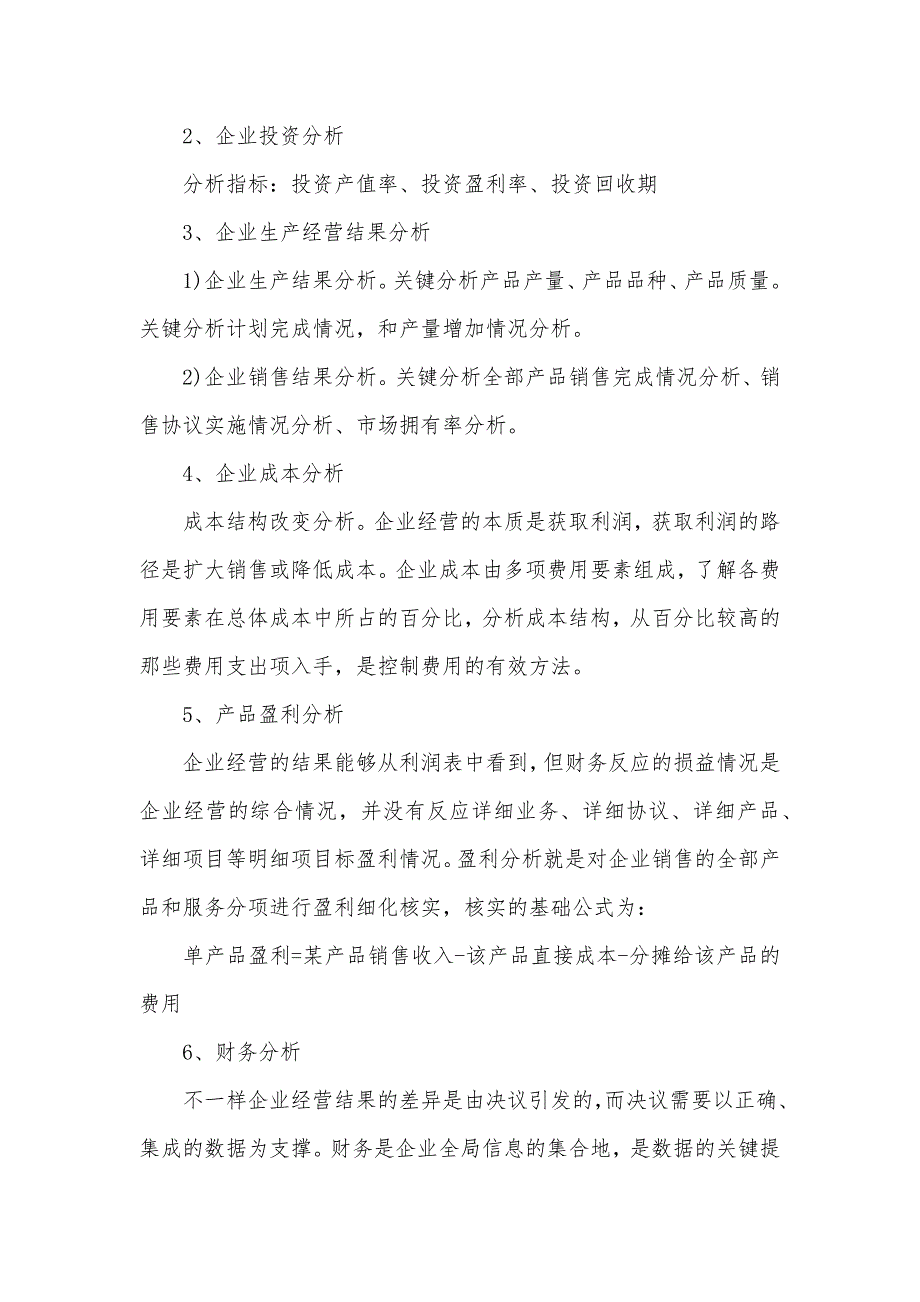 2、企业投资分析
分析指标：投资产值率、投资盈利率、投资回收期
3、企业生产经营结果分析
1)企业生产结果分析。关键分析产品产量、产品品种、产品质量。
关键分析计划完成情况，和产量增加情况分析。
2)企业销售结果分析。关键分析全部产品销售完成情况分析、销
售协议实施情况分析、市场拥有率分析。
4、企业成本分析
成本结构改变分析。企业经营的本质是获取利润，获取利润的路
径是扩大销售或降低成本。企业成本由多项费用要素组成，了解各费
用要素在总体成本中所占的百分比，分析成本结构，从百分比较高的
那些费用支出项入手，是控制费用的有效方法。
5、产品盈利分析
企业经营的结果能够从利润表中看到，但财务反应的损益情况是
企业经营的综合情况，并没有反应详细业务、详细协议、详细产品、
详细项目等明细项目标盈利情况。盈利分析就是对企业销售的全部产
品和服务分项进行盈利细化核实，核实的基础公式为：
单产品盈利=某产品销售收入-该产品直接成本-分摊给该产品的
费用
6、财务分析
不一样企业经营结果的差异是由决议引发的，而决议需要以正确、
集成的数据为支撑。财务是企业全局信息的集合地，是数据的关键提